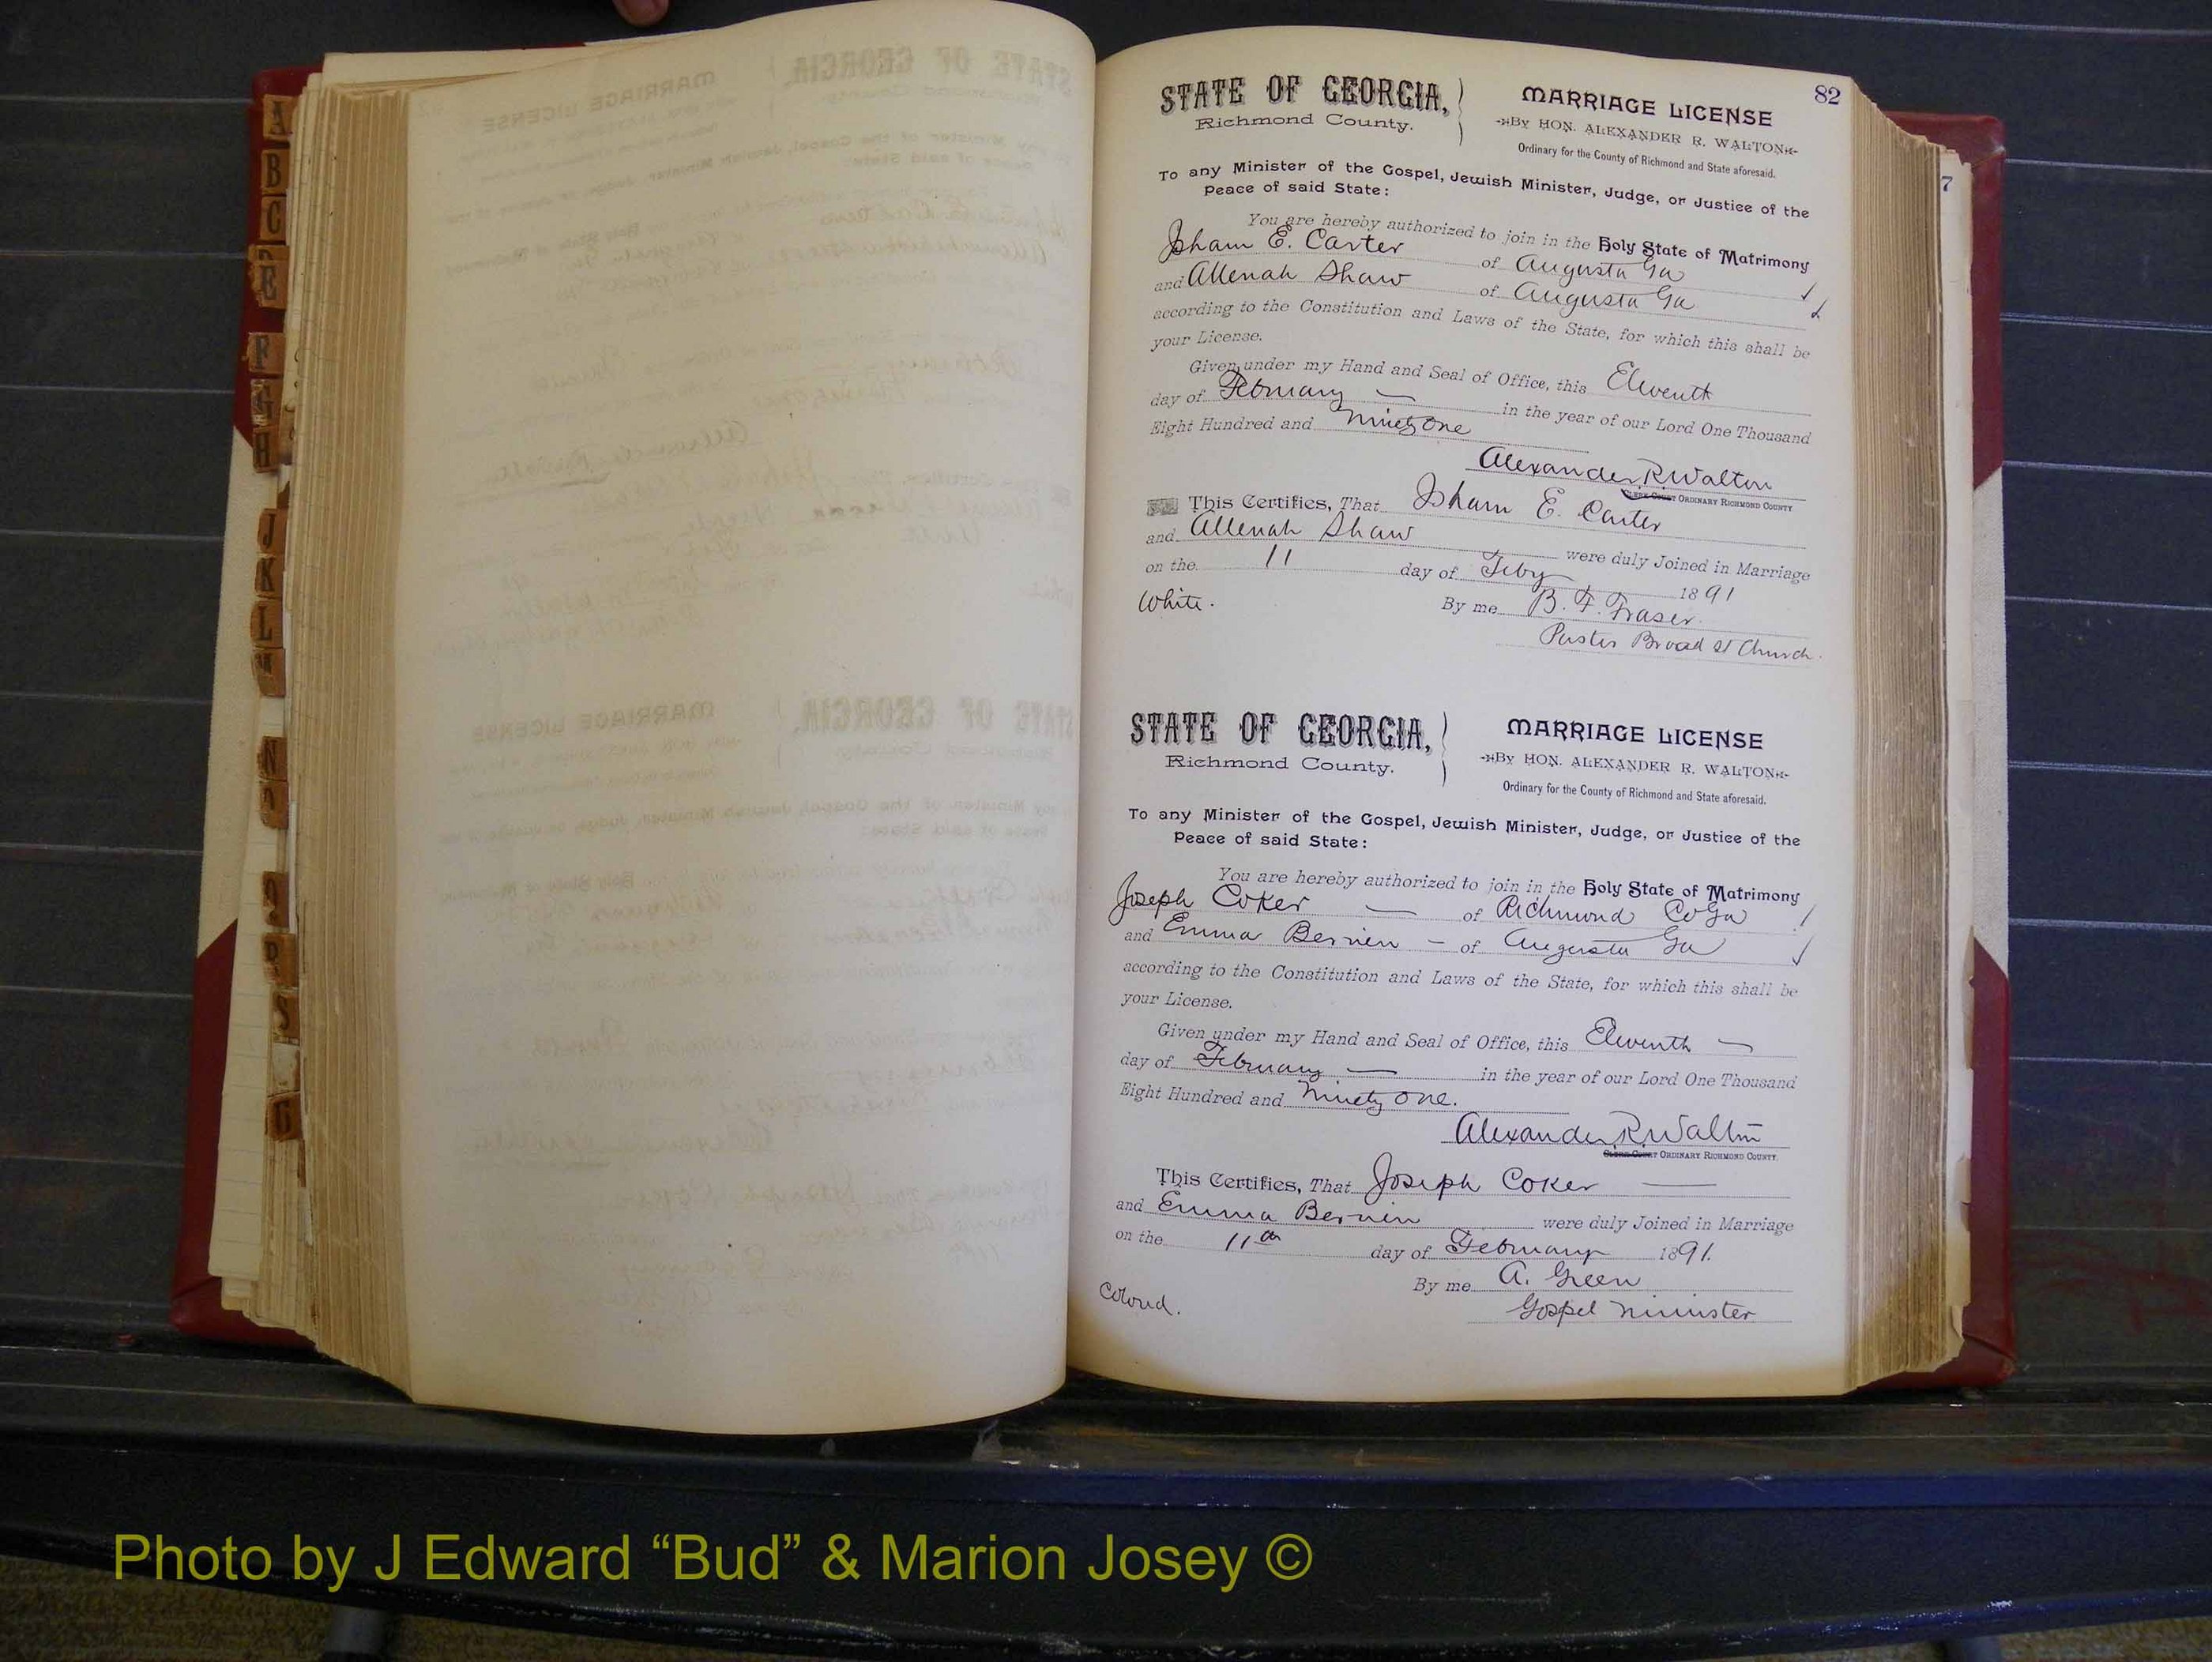 A
B
C
E
F
G
H
J
K
L
M
N
O
P
R
S
82
7
STATE OF GEORGIA,
Richmond County.
MARRIAGE LICENSE
By HON. ALEXANDER R. WALTON
Ordinary for the County of Richmond and State aforesaid.
To any Minister of the Gospel, Jewish Minister, Judge, or Justice of the
Peace of said State:
You are hereby authorized to join in the Holy State of Matrimony
Isham E. Carter of Augusta Ga
and Allenah Shaw of Augusta Ga
according to the Constitution and Laws of the State, for which this shall be
your License.
Given under my Hand and Seal of Office, this Elventh
day of February — in the year of our Lord One Thousand
Eight Hundred and Ninety One
Alexander R. Walton
CLERK COURT ORDINARY RICHMOND COUNTY
This Certifies, That Isham E. Carter
and Allenah Shaw were duly Joined in Marriage
on the 11 day of Feby 1891
White. By me B. F. Fraser.
Pastor Broad St Church.
STATE OF GEORGIA,
Richmond County.
MARRIAGE LICENSE
By HON. ALEXANDER R. WALTON
Ordinary for the County of Richmond and State aforesaid.
To any Minister of the Gospel, Jewish Minister, Judge, or Justice of the
Peace of said State:
You are hereby authorized to join in the Holy State of Matrimony
Joseph Coker — of Richmond Co Ga
and Emma Bernien — of Augusta Ga
according to the Constitution and Laws of the State, for which this shall be
your License.
Given under my Hand and Seal of Office, this Elventh —
day of February — in the year of our Lord One Thousand
Eight Hundred and Ninety One.
Alexander R. Walton
CLERK COURT ORDINARY RICHMOND COUNTY.
This Certifies, That Joseph Coker —
and Emma Bernien were duly Joined in Marriage
on the 11th day of February 1891.
By me A. Green
Colored. Gospel Minister
Photo by J Edward “Bud” & Marion Josey ©